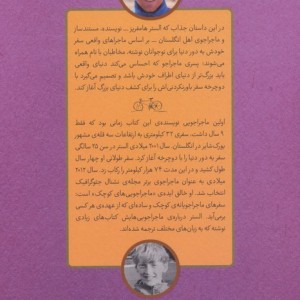 در این داستان جذاب که الستر هامفریز ... نویسنده، مستندساز
و ماجراجوی اهل انگلستان ... بر اساس ماجراهای واقعی سفر
خودش به دور دنیا برای نوجوانان نوشته، مخاطبان با تام همراه
می‌شوند؛ پسری ماجراجو که احساس می‌کند دنیای واقعی
باید بزرگ‌تر از دنیای اطراف خودش باشد و تصمیم می‌گیرد با
دوچرخه سفر باورنکردنی‌اش را برای کشف دنیای بزرگ آغاز کند.
اولین ماجراجویی نویسنده‌ی این کتاب زمانی بود که فقط
۹ سال داشت. سفری ۴۲ کیلومتری به ارتفاعات سه قله‌ی مشهور
یورک‌شایر در انگلستان. سال ۲۰۰۱ میلادی الستر در سن ۲۵ سالگی
سفر به دور دنیا را با دوچرخه آغاز کرد. سفر طولانی او چهار سال
طول کشید و در این مدت ۷۴ هزار کیلومتر را رکاب زد. سال ۲۰۱۲
میلادی به عنوان ماجراجوی برتر مجله‌ی نشنال جئوگرافیک
انتخاب شد. او خالق ایده‌ی «ماجراجویی‌های کوچک» است؛
سفرهای ماجراجویانه‌ی کوچک و ساده‌ای که از عهده‌ی هر کسی
برمی‌آید. الستر درباره‌ی ماجراجویی‌هایش کتاب‌های زیادی
نوشته که به زبان‌های مختلف ترجمه شده‌اند.